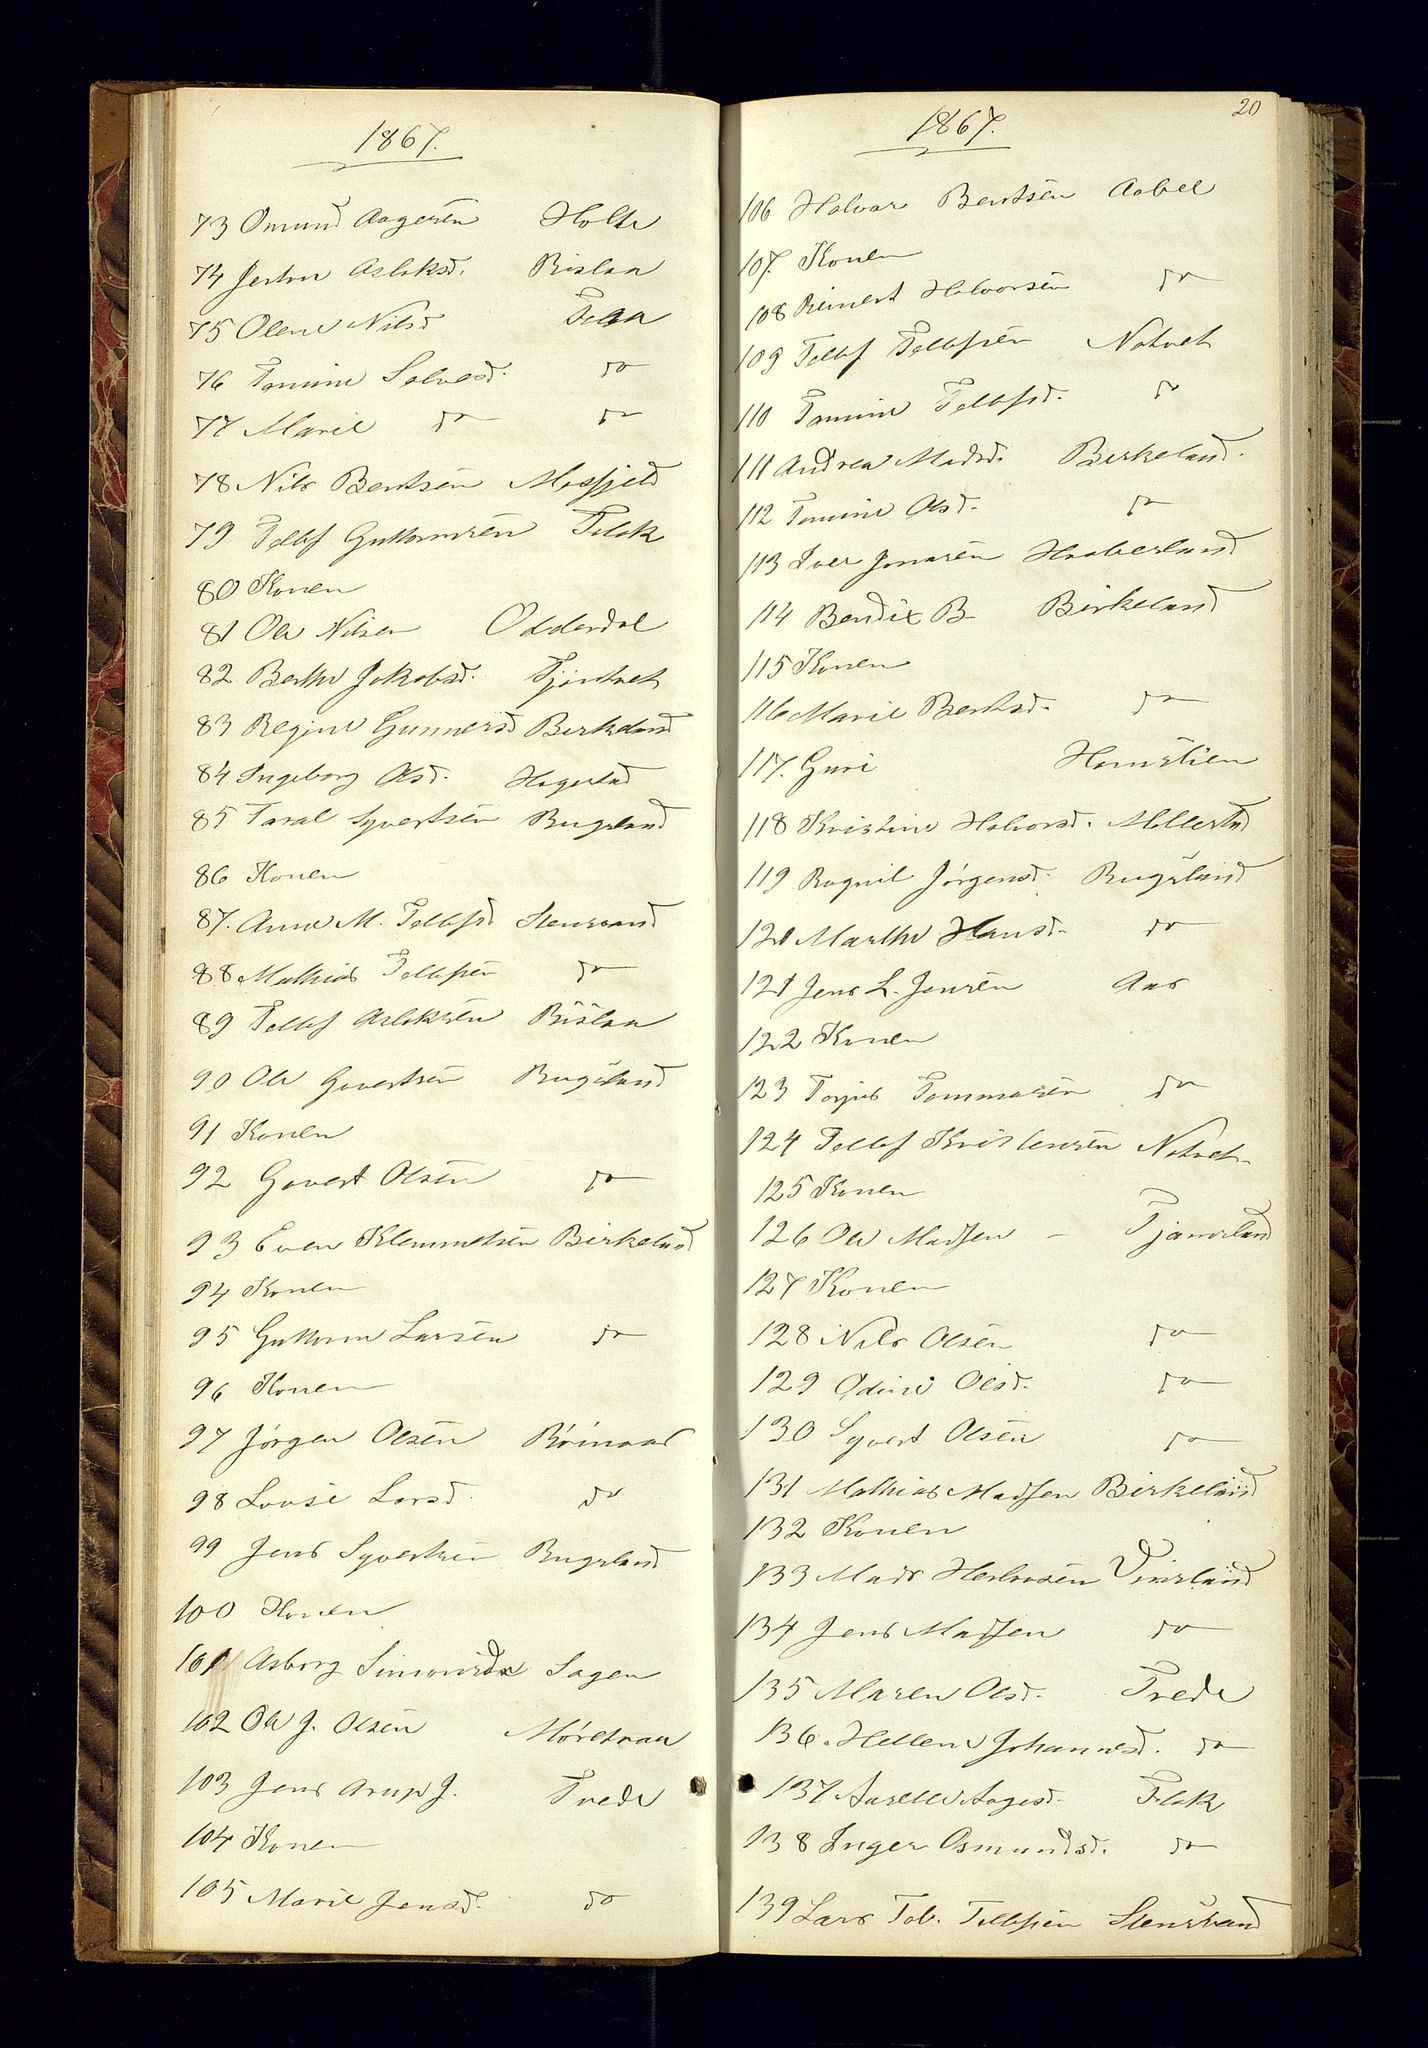 1867.
73 Omund Aagesen Holte
74 Aslaksd. Rislaa
75 Olene Nilsd Fidjaa
76 Tomine Salvesd. do
77 Marie do do
78 Nils Bentsen Mosfjeld
79 Tellef Guttormsen Flak
80 Konen
81 Ole Nilsen Odderdal
82 Berthe Jakobsd. Tjøntvet
83 Regine Gunnersd Birkeland
84 Ingeborg Olsd. Hagestad
85 Taral Syvertsen Bugsland
86 Konen
87. Anne M. Tellefsd Stensvand
88 Mathias Tellefsen do
89 Tellef Aslaksen Rislaa
90 Ole Govertsen Bugsland
91 Konen
92 Govert Olsen do
93 Even Klemmetsen Birkeland
94 Konen
95 Guttorm Larsen do
96 Konen
97 Jørgen Olsen
98 Lovise Larsd. do
99 Jens Syvertsen Bugsland
100 Konen
101 Asborg Simonsda Sagen
102 Ole J. Olsen
103 Jens Arup J. Trede
104 Konen
105 Marie Jensd. do
20
1867.
106 Halvor Bentsen Aabel
107. Konen
108 Reinert Halvorsen do
109 Tellef Tellefsen Natvet
110 Tomine Tellefsd. do
111 Andrea Madsd. Birkeland.
112 Tomine Olsd. do
113 Iver Jonasen Haaberland
114 Bendix B. Birkeland
115 Konen
116 Marie Bentsd. do
117. Guri
118 Kristine Halvorsd. Mollestad
119 Ragnil Jørgensd. Bugsland
120 Marthe Hansd. do
121 Jens L. Jensen Aas
122 Konen
123 Torjus Tommasen do
124 Tellef Kristensen Natvet.
125 Konen
126 Ole Madsen - Tjamsland
127 Konen
128 Nils Olsen do
129 Odine Olsd. do
130 Syvert Olsen do
131 Mathias Madsen Birkeland
132 Konen
133 Mads Herlovsen Vinsland
134 Jens Madsen do
135 Maren Olsd. Trede
136. Hellene Johannesd. do
137 Aagesd. Flak
138 Inger Osmundsd. do
139 Lars Tob. Tellefsen Stensvand